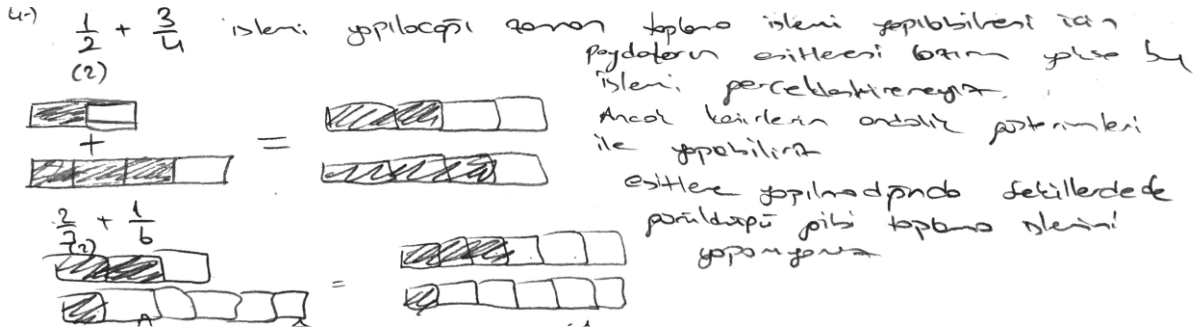 4-) 1/2 + 3/4 işlemi yapılacağı zaman toplama işlemi yapılabilmesi için
(2)
paydaların eşitlenmesi lazım yoksa bu
işlemi gerçekleştiremeyiz.
Ancak kesirlerin ondalık gösterimleri
ile yapabiliriz
+
=
eşitleme yapılmadığında şekillerdede
görüldüğü gibi toplama işlemini
yapamıyoruz
2/3 + 1/6
(2)
=